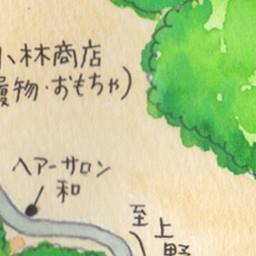 小林商店
履物・おもちゃ)
ヘアーサロン
和
至上野